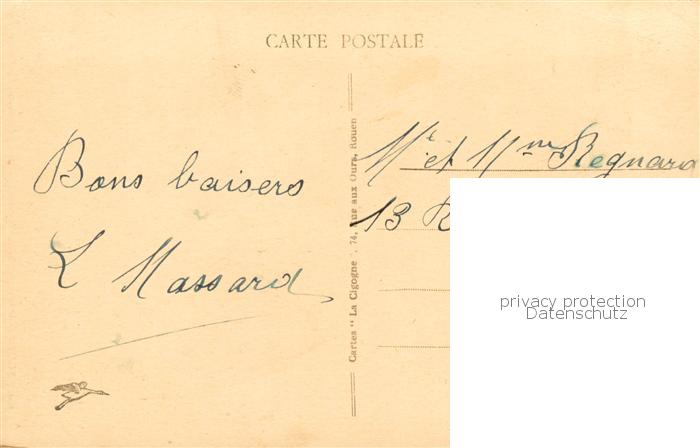 CARTE POSTALE
Bons baisers
L Massard
Cartes " La Cigogne ", 74, Rue aux Ours, Rouen
Mr et Mme Regnard
13 R
privacy protection
Datenschutz